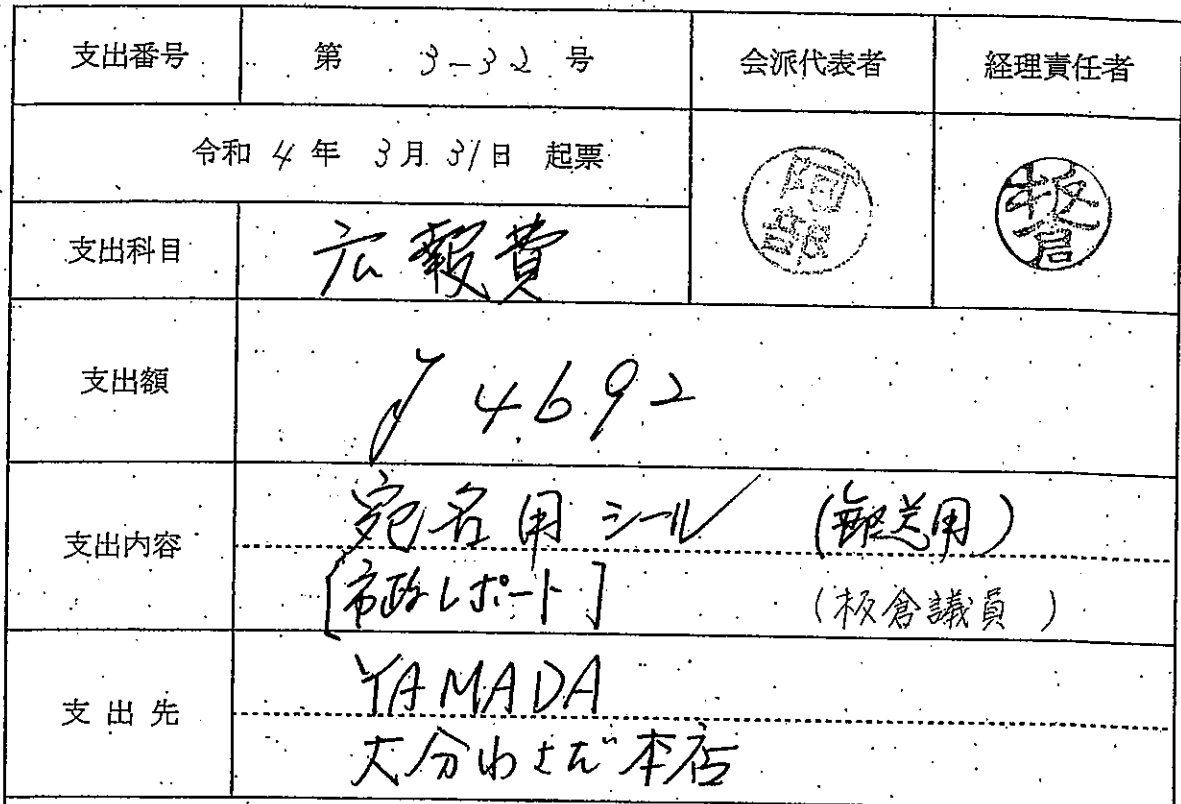 支出番号 第 3-32 号 会派代表者 経理責任者
令和 4 年 3月 31日 起票
阿部
板倉
支出科目 広報費
支出額 ¥4692
支出内容 宛名用シール (郵送用)
[市政レポート] (板倉議員)
支出先 YAMADA
大分わさだ本店